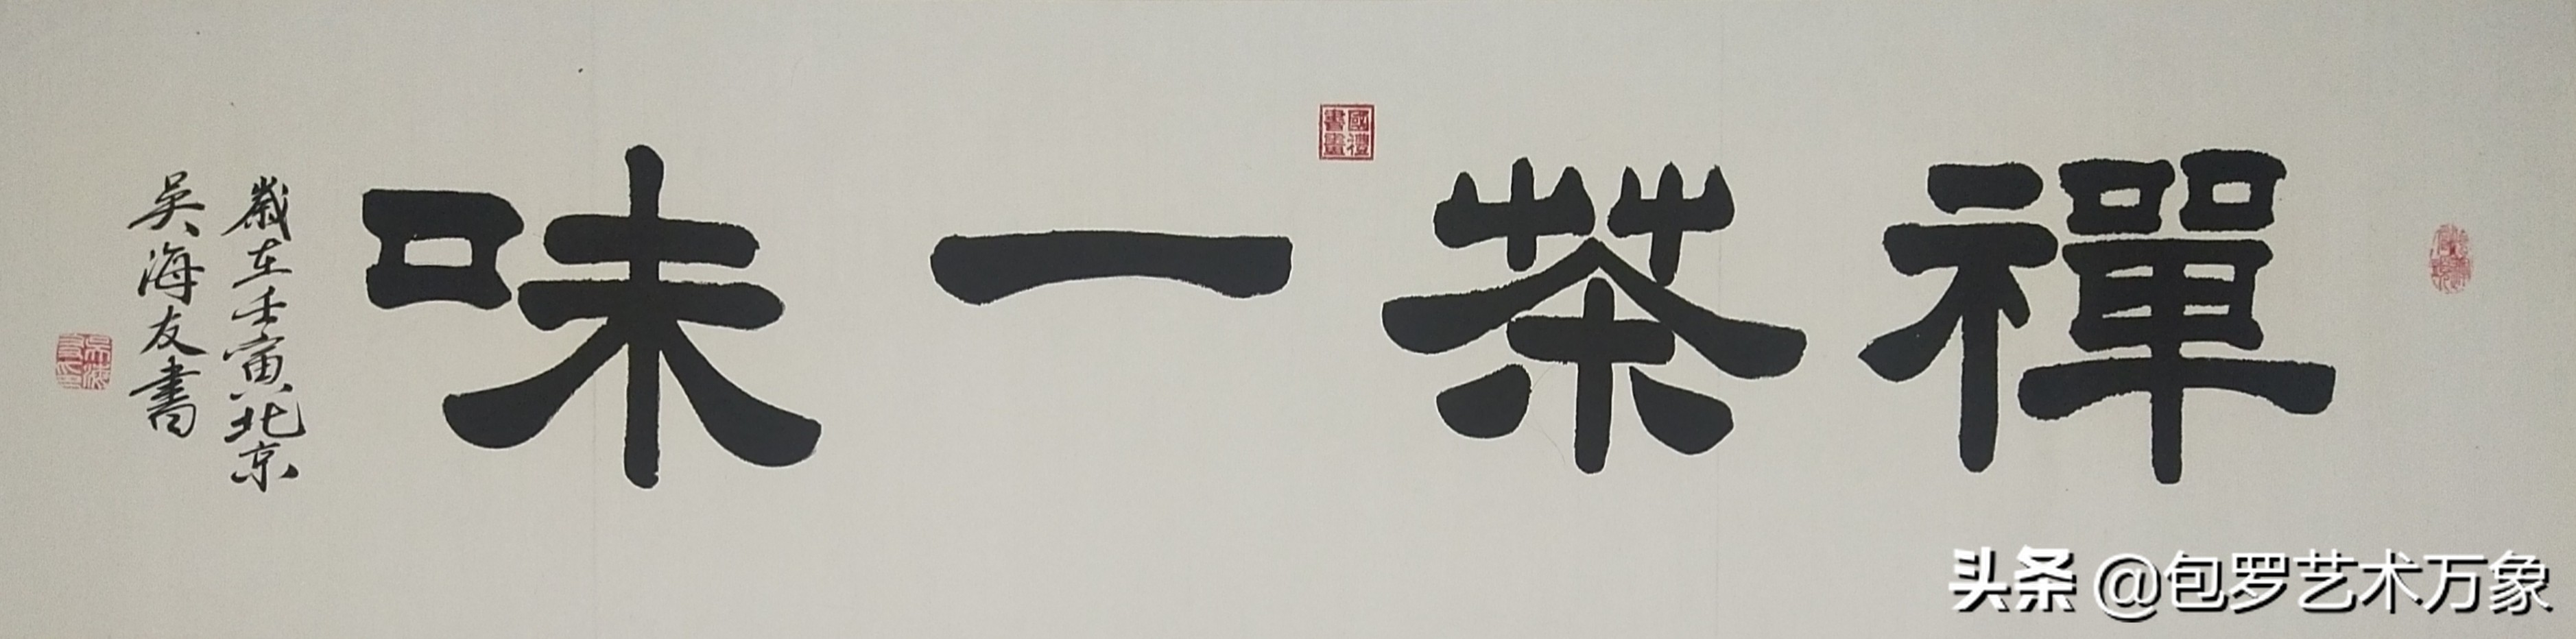 禪茶一味
國禮
書畫
歲在壬寅北京
吳海友書
头条 @包罗艺术万象